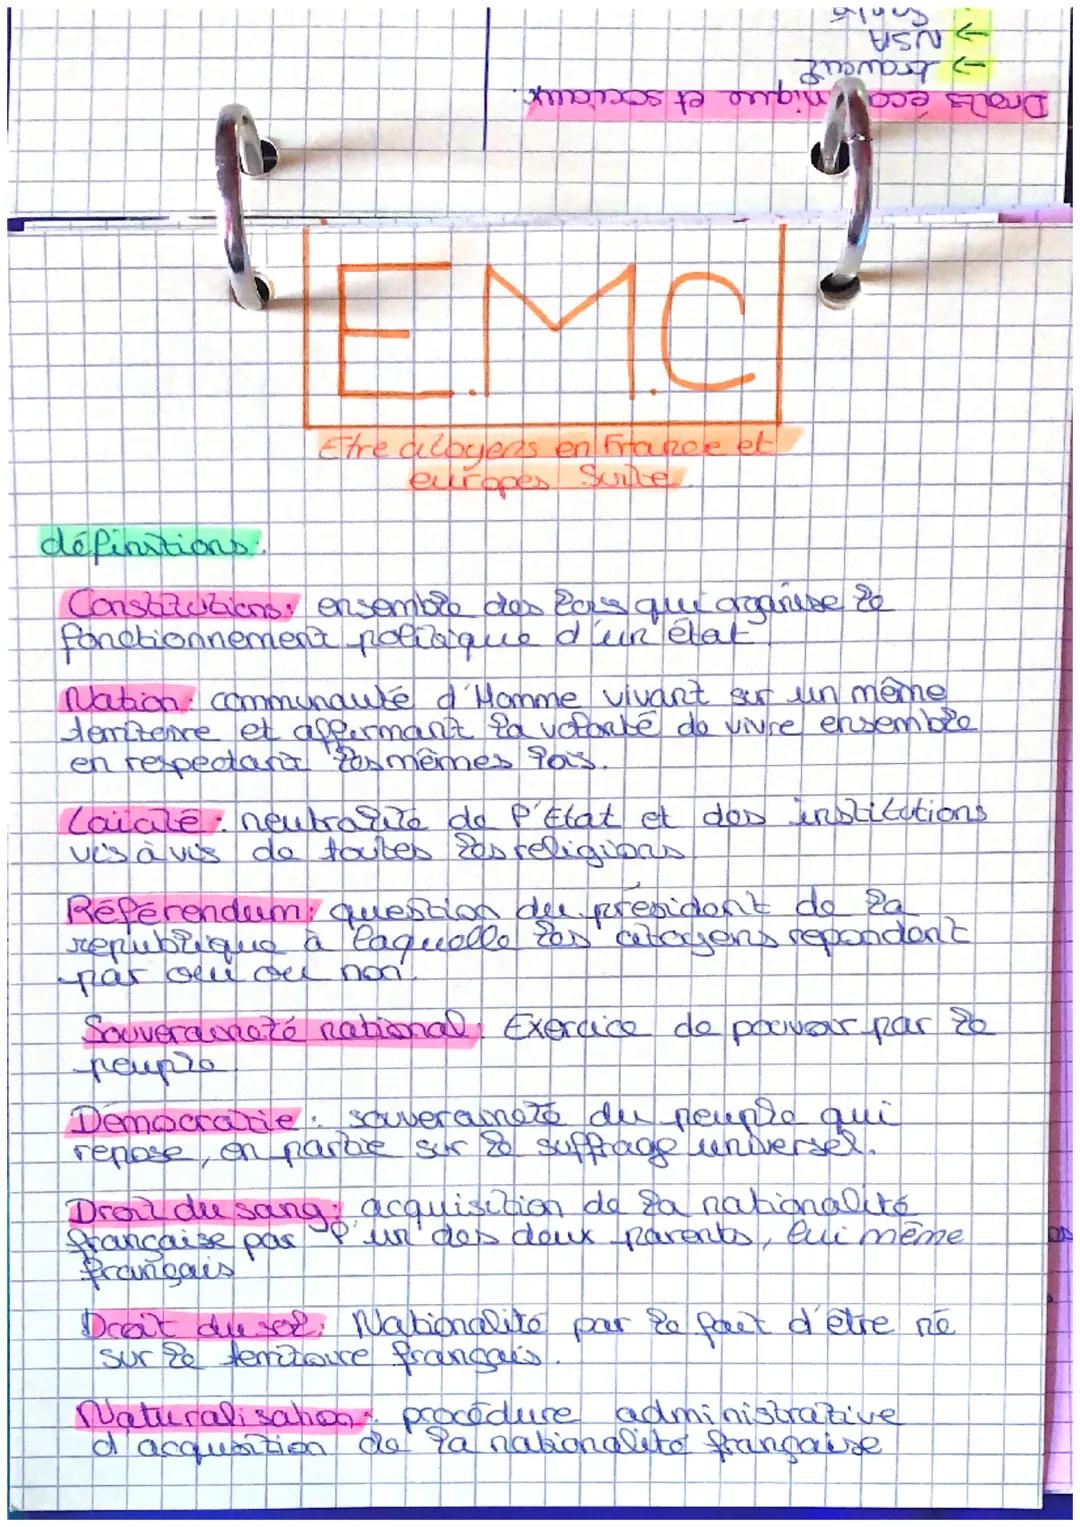 Droits économique et sociaux.
→ travail
→ NSA
→ Santé
E.M.C
Etre citoyens en France et
europes Suite
définitions:
Constitutions: ensemble des lois qui organise le
fonctionnement politique d'un état
Nation: communauté d'Homme vivant sur un même
territoire et affirmant la volonté de vivre ensemble
en respectant les mêmes lois.
Laïcité: neutralité de l'Etat et des institutions
vis à vis de toutes les religions
Référendum: question du président de la
republique à laquelle les citoyens repondent
par oui ou non.
Souveraineté national: Exercice de pouvoir par le
peuple.
Démocratie: souveraineté du peuple qui
repose, en partie sur le suffrage universel.
Droit du sang: acquisition de la nationalité
française par l'un des deux parents, lui même
français
Droit du sol: Nationalité par le fait d'être né
sur le territoire français.
Naturalisation: procédure administrative
d'acquisition de la nationalité française